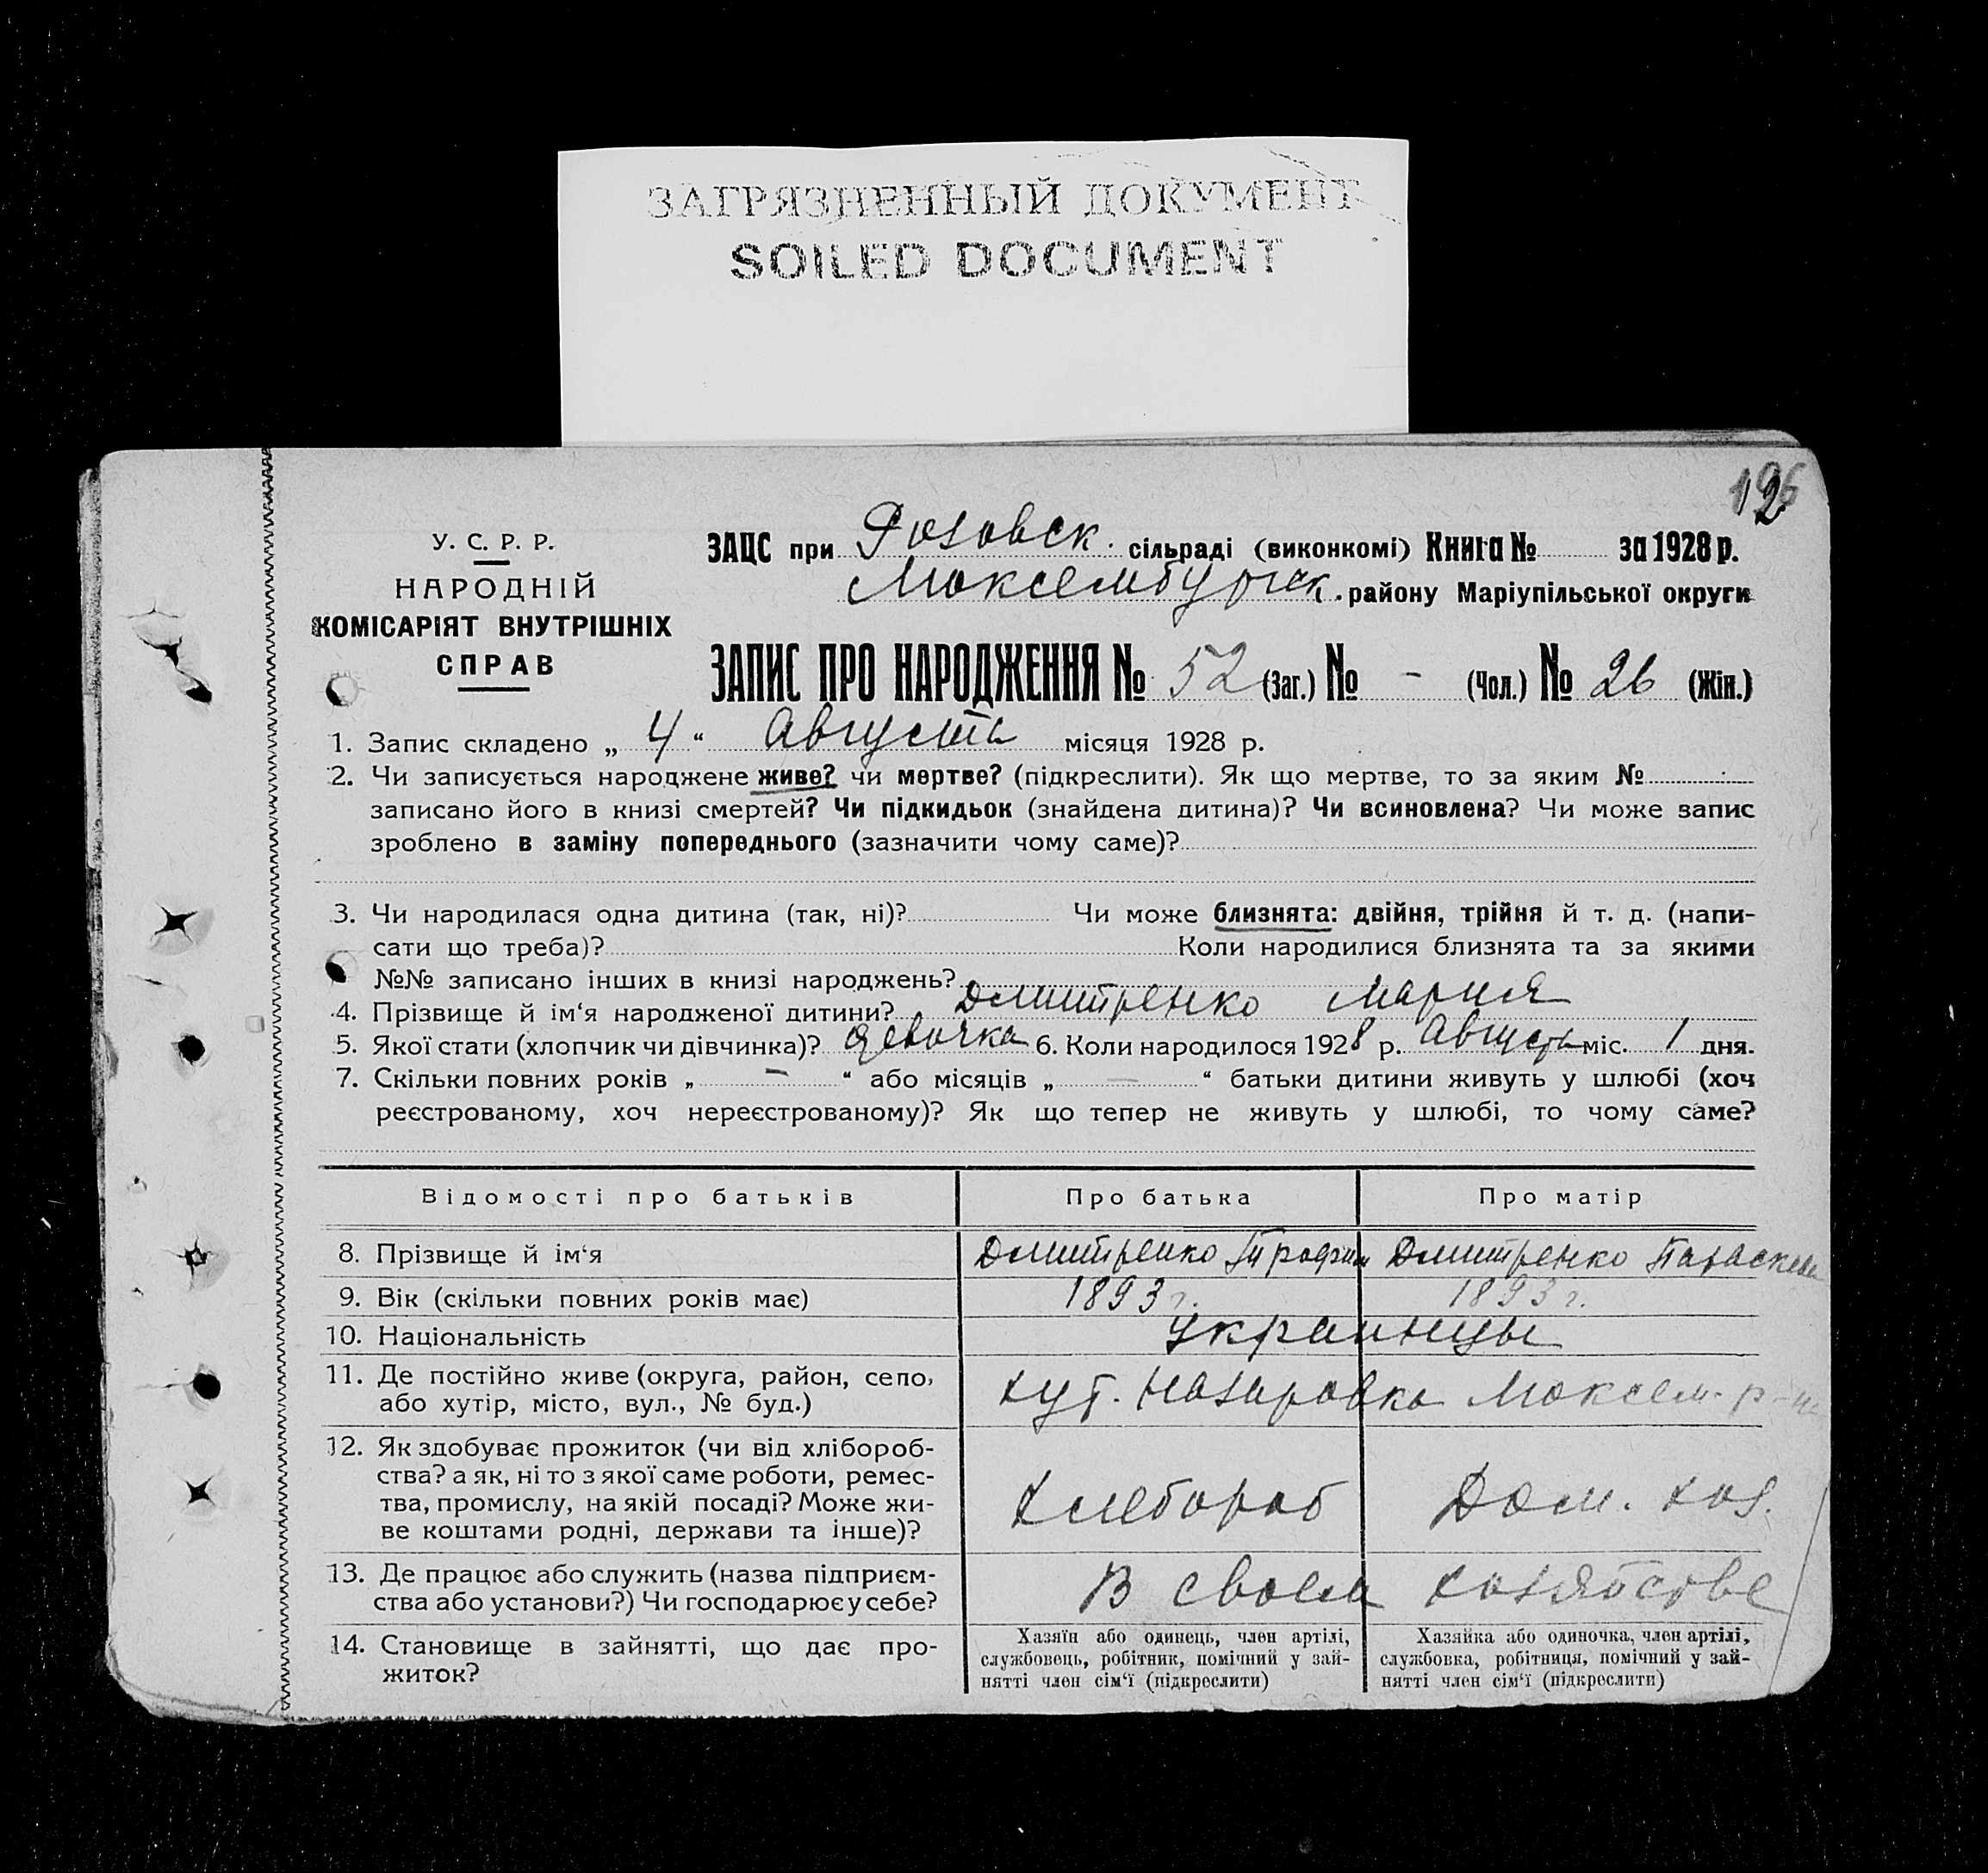 ЗАГРЯЗНЕННЫЙ ДОКУМЕНТ
SOILED DOCUMENT
У. С. Р. Р.
НАРОДНІЙ
КОМІСАРІЯТ ВНУТРІШНІХ
СПРАВ
ЗАЦС при Розовск. сільраді (виконкомі) Книга № за 1928 р.
Моксембургск. району Маріупільської округи
ЗАПИС ПРО НАРОДЖЕННЯ № 52 (Заг.) № - (Чол.) № 26 (Жін.)
1. Запис складено „ 4 “ Августа місяця 1928 р.
2. Чи записується народжене живе? чи мертве? (підкреслити). Як що мертве, то за яким №
записано його в книзі смертей? Чи підкидьок (знайдена дитина)? Чи всиновлена? Чи може запис
зроблено в заміну попереднього (зазначити чому саме)?
3. Чи народилася одна дитина (так, ні)? Чи може близнята: двійня, трійня й т. д. (напи-
сати що треба)? Коли народилися близнята та за якими
№№ записано інших в книзі народжень?
4. Прізвище й ім‘я народженої дитини? Дмитренко Мария
5. Якої стати (хлопчик чи дівчинка)? девочка 6. Коли народилося 1928 р. Августа міс. 1 дня.
7. Скільки повних років „ - “ або місяців „ - “ батьки дитини живуть у шлюбі (хоч
реєстрованому, хоч нереєстрованому)? Як що тепер не живуть у шлюбі, то чому саме?
Відомості про батьків Про батька Про матір
8. Прізвище й ім‘я Дмитренко Трофим Дмитренко Параскева
9. Вік (скільки повних років має) 1893 г. 1893 г.
10. Національність украинцы
11. Де постійно живе (округа, район, село,
або хутір, місто, вул., № буд.) хут. Назаровка Моксем. р-на
12. Як здобуває прожиток (чи від хлібороб-
ства? а як, ні то з якої саме роботи, ремес-
тва, промислу, на якій посаді? Може жи-
ве коштами родні, держави та інше)?
Хлебороб Дом. хоз.
13. Де працює або служить (назва підприєм-
ства або установи?) Чи господарює у себе?
В своем хозяйстве
14. Становище в зайнятті, що дає про-
житок?
Хазяїн або одинець, член артілі,
службовець, робітник, помічний у зай-
нятті член сім‘ї (підкреслити)
Хазяйка або одиночка, член артілі,
службовка, робітниця, помічний у зай-
нятті член сім‘ї (підкреслити)